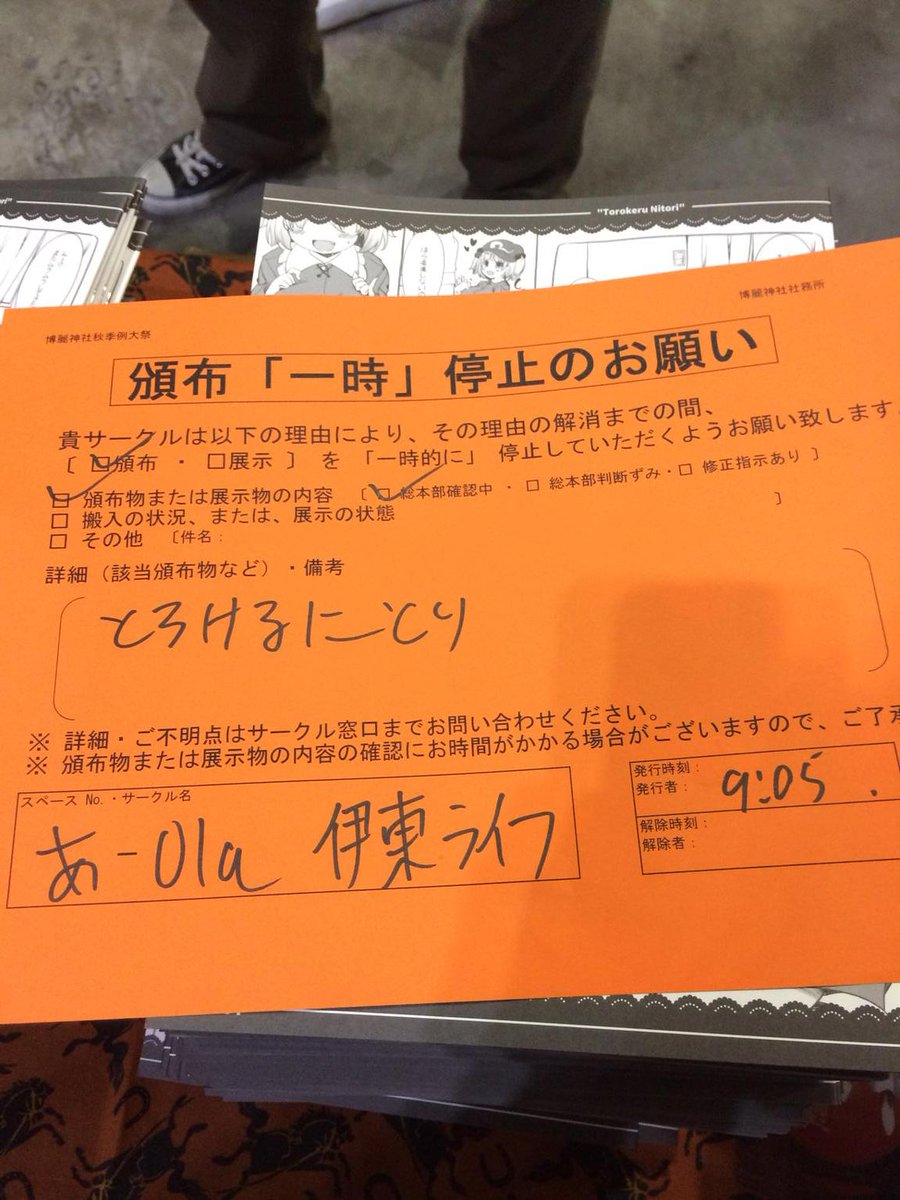 "Torokeru Nitori"
博麗神社秋季例大祭
博麗神社社務所
頒布「一時」停止のお願い
貴サークルは以下の理由により、その理由の解消までの間、
〔 ☑頒布 ・ □展示 〕 を 「一時的に」 停止していただくようお願い致します。
☑ 頒布物または展示物の内容 〔 ☑ 総本部確認中 ・ □ 総本部判断ずみ・□ 修正指示あり 〕
□ 搬入の状況、または、展示の状態
□ その他 〔件名： 〕
詳細（該当頒布物など）・備考
とろけるにとり
※ 詳細・ご不明点はサークル窓口までお問い合わせください。
※ 頒布物または展示物の内容の確認にお時間がかかる場合がございますので、ご了承
スペース No.・サークル名
あ-01a 伊東ライフ
発行時刻：
発行者： 9:05
解除時刻：
解除者：